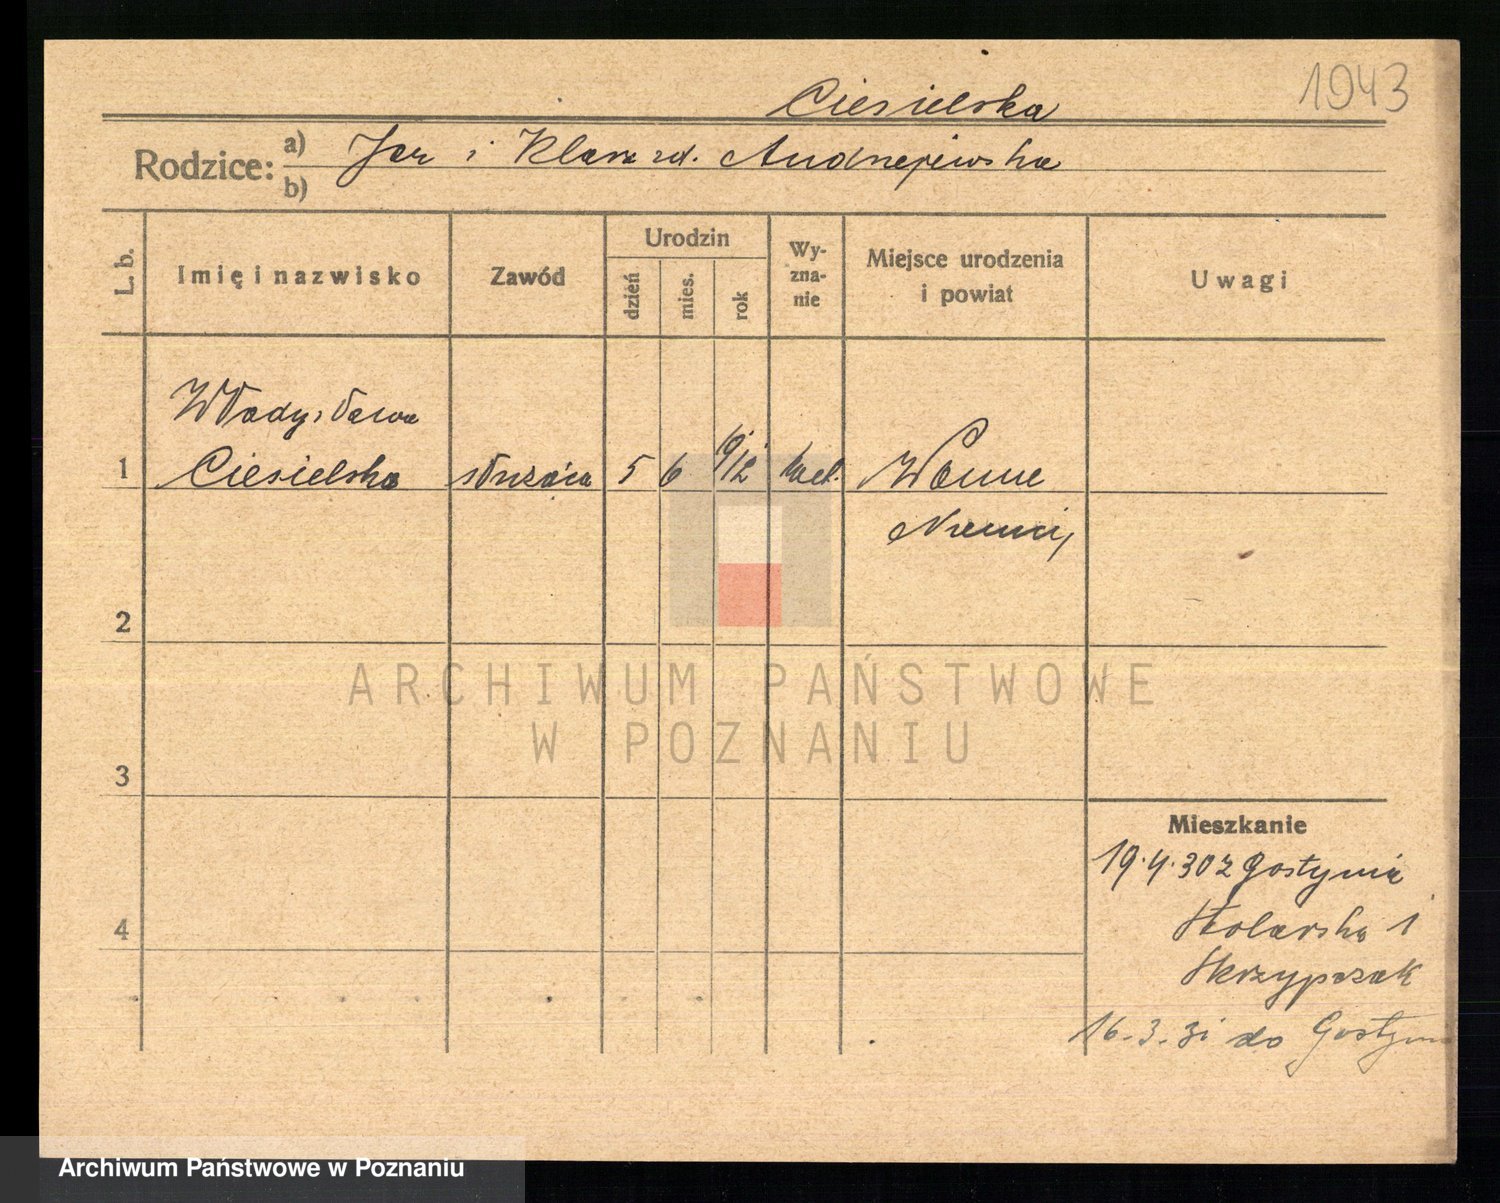 1943
Ciesielska
Rodzice: a) Jan i Klara zd. Andrzejewska
b)
L. b. Imię i nazwisko Zawód Urodzin dzień mies. rok Wy-zna-nie Miejsce urodzenia i powiat Uwagi
Władysława
1 Ciesielska służąca 5 6 912 kat. Wanne
Niemcy
2
ARCHIWUM PAŃSTWOWE
W POZNANIU
3
Mieszkanie
19.4.30 z Gostynia
Stolarska 1
4
Skrzypczak
16.3.31 do Gostynia
Archiwum Państwowe w Poznaniu